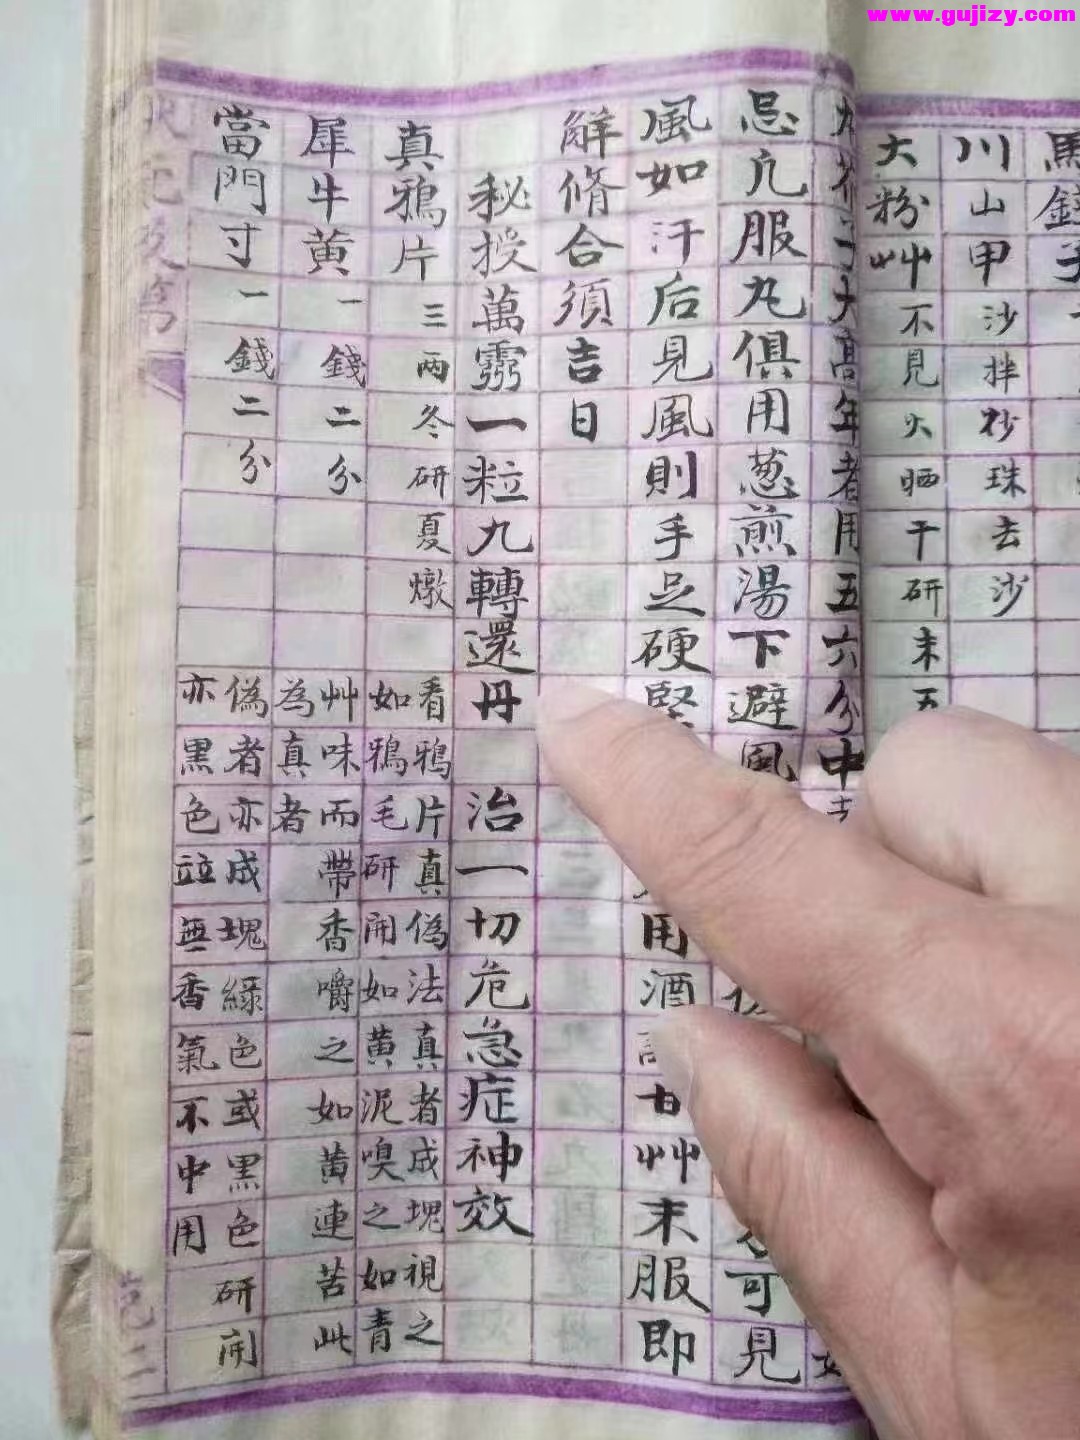 www.gujizy.com
馬錢子
川山甲 沙拌抄珠去沙
大粉艸 不見火晒干研末五
子大高年者用五六分中
忌亢服丸俱用葱煎湯下避風 可見
風如汗后見風則手足硬緊 用酒 甘艸末服即
觧脩合須吉日
秘授萬霛一粒九轉還丹 治一切危急症神效
真鴉片 三兩冬研夏燉
看鴉片真偽法真者成塊視之
如鴉毛研開如黄泥嗅之如青
犀牛黄 一錢二分
艸味而帶香嚼之如黄連苦此
為真者
當門寸 一錢二分
偽者亦成塊綠色或黑色研開
亦黑色竝無香氣不中用